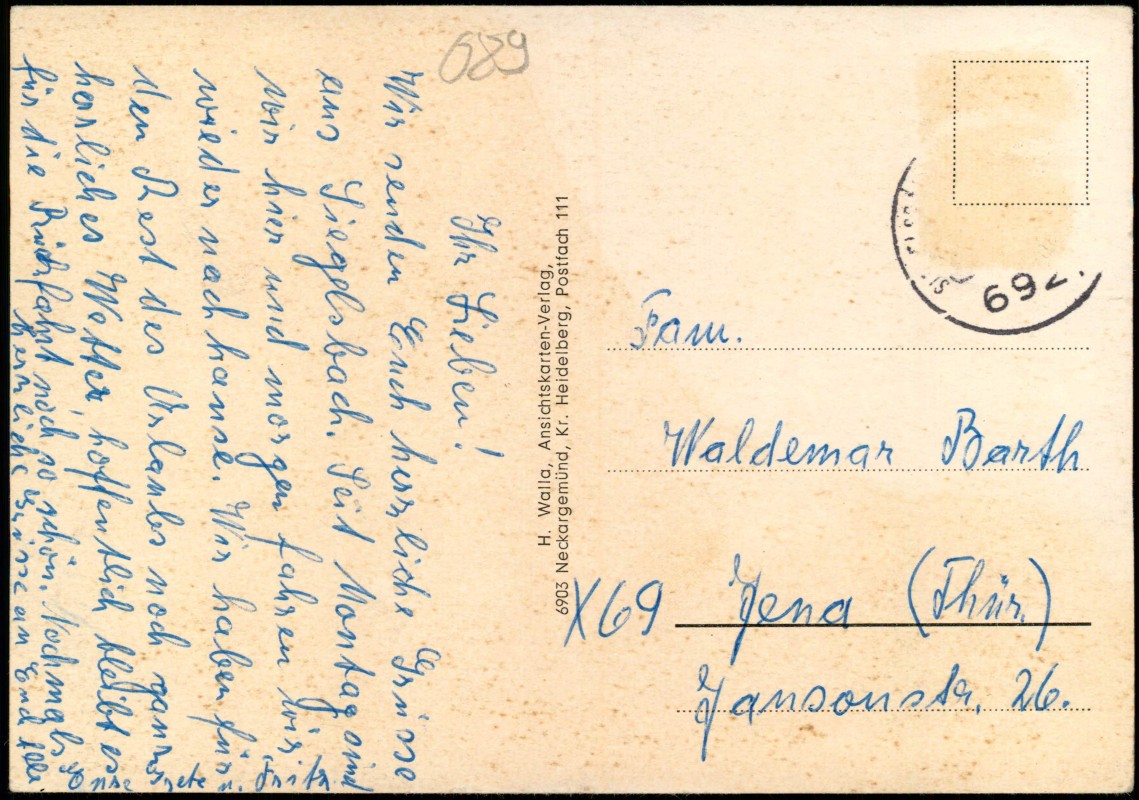 689
Ihr Lieben!
Wir senden Euch herzliche Grüsse
aus Siegelsbach. Seit Montag sind
wir hier und morgen fahren wir
wieder nach hause. Wir haben für
den Rest des Urlaubs noch ganz
herliches Wetter, hoffentlich bleibt es
für die Rückfahrt noch so schön. Nochmals
herzliche Grüsse an Euch alle.
u. Fritz
H. Walla, Ansichtskarten-Verlag,
6903 Neckargemünd, Kr. Heidelberg, Postfach 111
692
Fam.
Waldemar Barth
X69 Jena (Thür.)
Jansonstr. 26.